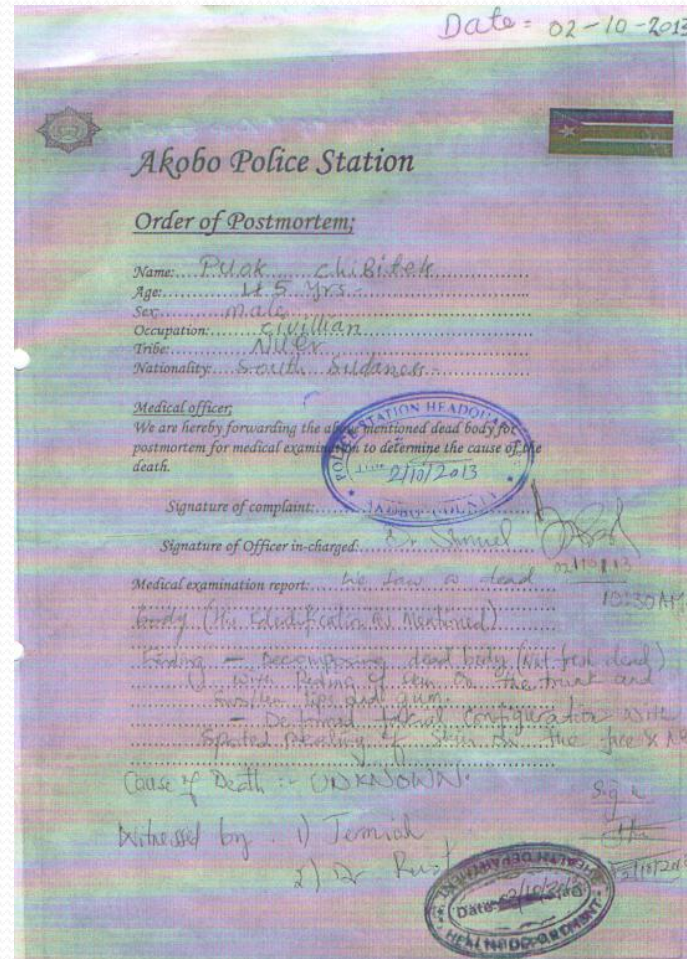 Date = 02-10-2013
Akobo Police Station
Order of Postmortem;
Name:.... Puok ..... Chibitek
Age:......... 45 Yrs -
Sex:........ male
Occupation:..... civillian
Tribe:......... Nuer
Nationality:.... South Sudanese -
Medical officer;
We are hereby forwarding the above mentioned dead body for
postmortem for medical examination to determine the cause of the
death.
POLICE STATION HEADQUAR
Date 2/10/2013
AKOBO COUNTY
Signature of complaint:
Signature of Officer in-charged: Dr Samuel
02/10/13
10:30 AM
Medical examination report: We saw a dead
body (the Identification as Mentioned)
Finding - Decomposing dead body (Not fresh dead)
with Peeling of skin on the trunk and
swollen lips and gum.
- Deformed facial configuration with
peeling of skin on the face &
Cause of Death :- UNKNOWN.
Sign
Witnessed by 1) Jermiah
2) Dr
2/10/2013
HEALTH DEPARTMENT
Date 02/10/2013
HEALTH DEPARTMENT